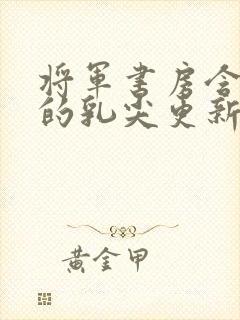 将军书房含
的乳尖更新
黄金甲